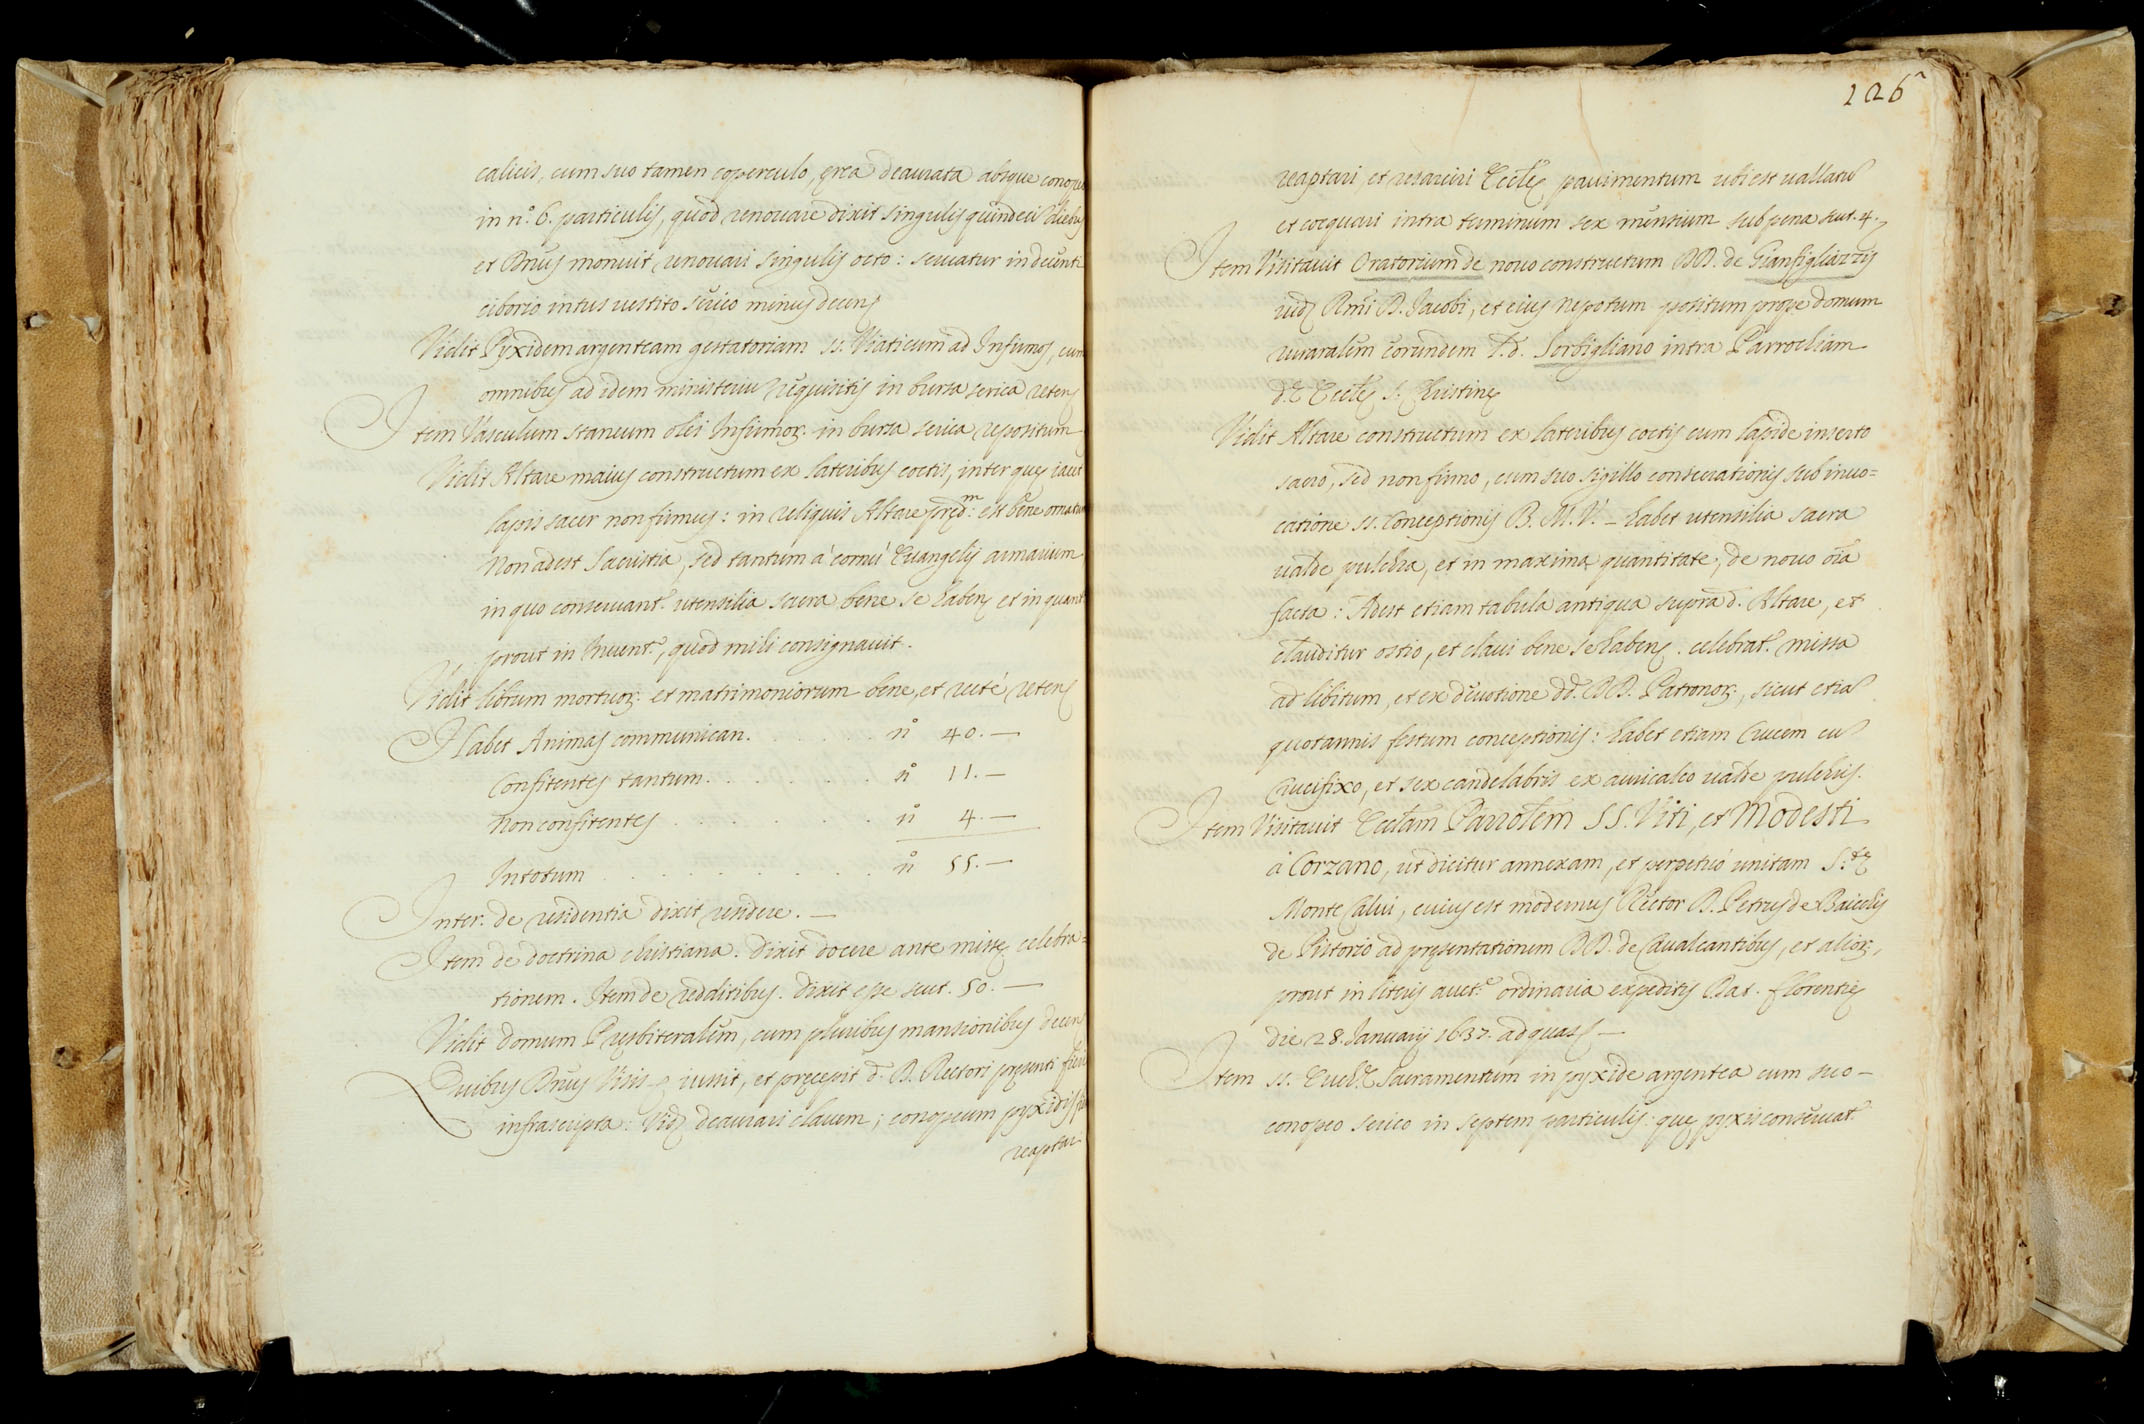 calicis, cum suo tamen coperculo, ęrea deaurata absque conopeo
in nº. 6. particulis, quod renouare dixit singulis quindeci diebus
et Dnus monuit renouari singulis octo: seruatur in decenti
ciborio intus uestito serico minus decens
Vidit Pyxidem argenteam gestatoriam ss. Viaticum ad Infirmos, cum
omnibus ad idem ministeriu requisitis in bursa serica retens
Item Vasculum staneum olei Infirmor. in bursa serica repositum
Vidit Altare maius constructum ex lateribus coctis, inter quos iacet
lapis sacer non firmus: in reliquis Altare pręd.m est bene ornatum
Non adest Sacristia, sed tantum à cornu Euangelij armarium
in quo conseruant.r utensilia sacra bene se habens et in quant.
prout in Inuent.º, quod mihi consignauit.
Vidit librum mortuor. et matrimoniorum bene, et recte retens
Habet Animas communican. . . . . . nº 40. —
Confitentes tantum. . . . . . . nº 11. —
Non confitentes . . . . . . . nº 4. —
In totum . . . . . . . . . . nº 55. —
Inter. de residentia dixit residere. —
Item de doctrina christiana. dixit docere ante missę celebra=
tionem. Item de redditibus. dixit esse scut. 50. —
Vidit domum Pręsbiteralem, cum pluribus mansionibus decens
Quibus Dnus Visis iussit, et pręcepit d. D. Rectori pręsenti fieri
infrascripta: Vidz deaurari clauem; conopeum pyxidis fieri
reaptari
126
reaptari, et resarciri Eccleę pauimentum ubi est uallatu
et coequari intra terminum sex mensium sub pena scut. 4.
Item Visitauit Oratorium de nouo constructum DD. de Gianfigliazzis
uidz Rmi D. Jacobi, et eius Nepotum positum prope domum
ruraralem eorundem l.d. Sorbigliano intra Parrochiam
d.ę Eccleę S. Christinę
Vidit Altare constructum ex lateribus coctis cum lapide inserto
sacro, sed non firmo, cum suo sigillo consecrationis sub inuo=
catione ss. Conceptionis B. M. V. — habet utensilia sacra
ualde pulchra, et in maxima quantitate, de nouo oia
facta: Adest etiam tabula antiqua supra d. Altare, et
clauditur ostio, et claui bene se habens. celebrat.r missa
ad libitum, et ex deuotione dd. DD. Patronor., sicut etia
quotannis festum conceptionis: habet etiam Crucem cu
Crucifixo, et sex candelabris ex auricalco ualde pulchris.
Item Visitauit Ecclam Parrolem SS. Viti, et Modesti
à Corzano, ut dicitur annexam, et perpetuò unitam S.tę
Monte Calui, cuius est modernus Rector D. Petrus de Baicolis
de Pistorio ad pręsentationem DD. de Caualcantibus, et alior.,
prout in literis auct.e ordinaria expeditis Dat. florentię
die 28. Januarij 1637. ad quas —
Item ss. Euch.ę Sacramentum in pyxide argentea cum suo —
conopeo serico in septem particulis: quę pyxis conseruat.r